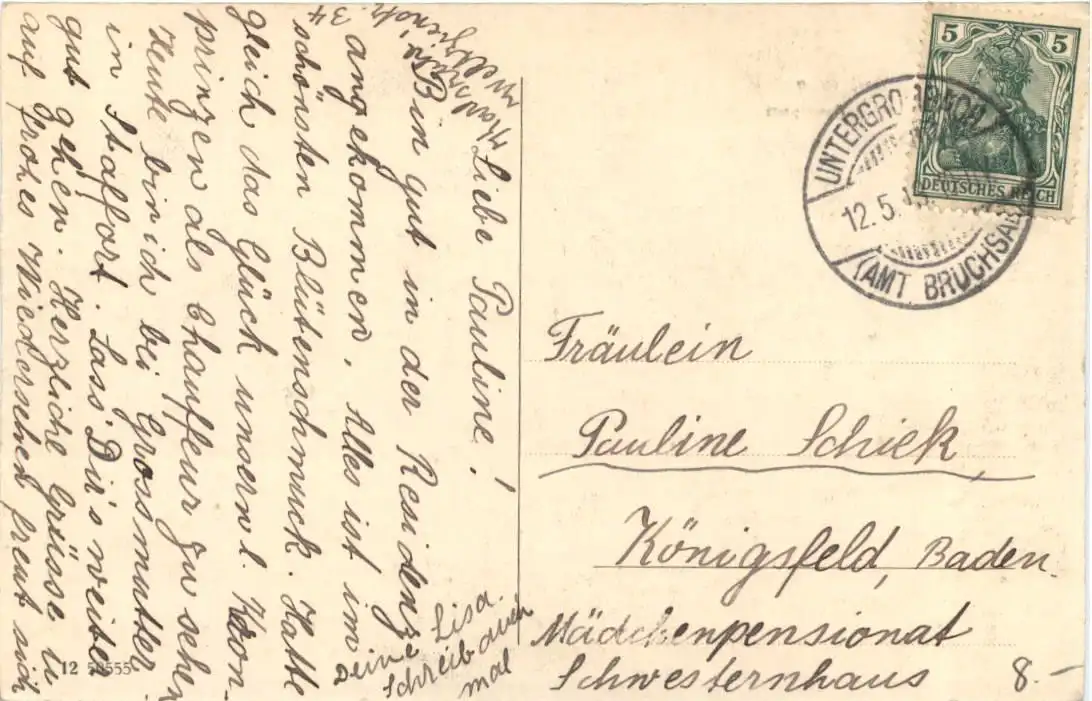 Karlsruhe
Weltzienstr. 34
Liebe Pauline!
Bin gut in der Residenz
angekommen. Alles ist im
schönsten Blütenschmuck. Hatte
gleich das Glück unsern l. Kron-
prinzen als Chauffeur zu sehen
Heute bin ich bei Grossmutter
in Staffort. Lass Dir's weiter
gut gehen. Herzliche Grüsse u
auf frohes Wiedersehen freut sich
Deine Lisa.
Schreib auch
mal
12 50555
5 5
DEUTSCHES REICH
UNTERGROMBACH
12.5.
(AMT BRUCHSAL)
Fräulein
Pauline Schick
Königsfeld, Baden.
Mädchenpensionat
Schwesternhaus
8.-